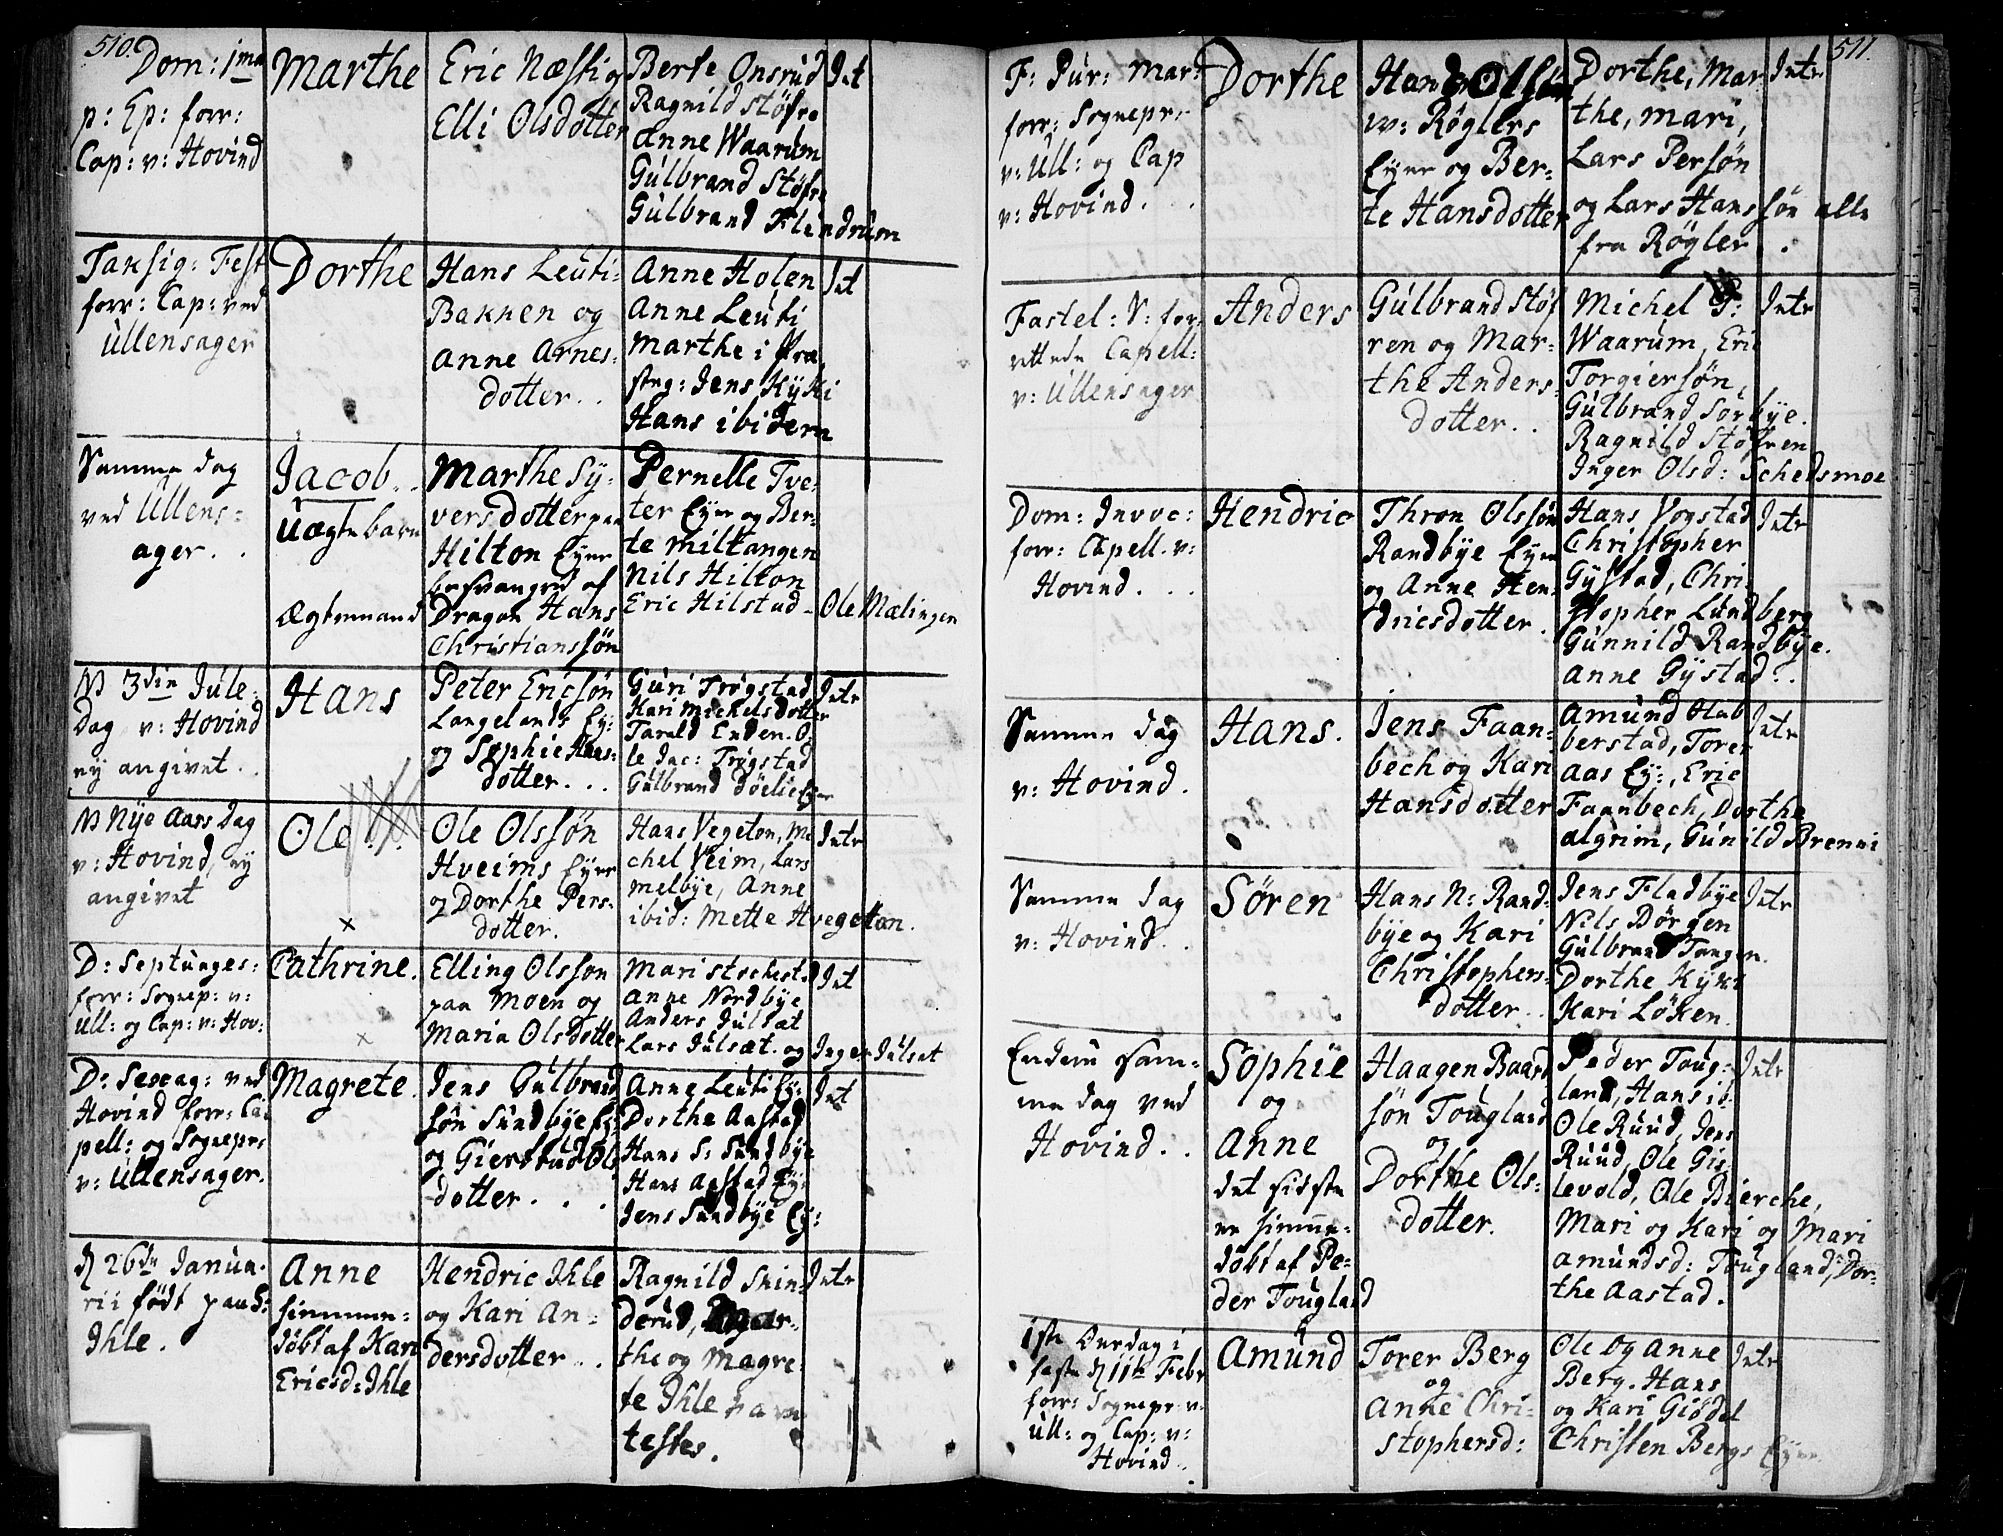 510.
Dom: 1ma
p: Ep: forr:
Cap: v: Hovind
Marthe
Eric Næssig
Elli Olsdotter
Berte Onsrud
Ragnild Støfre
Anne Waarum
Gulbrand Støfre
Gulbrand Flindrum
Int
Taksig: Fest
forr: Cap: ved
Ullensager
Dorthe
Hans Leuti-
Bakken og
Anne Arnes-
dotter..
Anne Holen
Anne Leuti
Marthe i Præ
steg: Jens Kyki
Hans ibidem
Int
Samme dag
ved Ullens-
ager..
Jacob..
Uægte barn
Ægtemand
Marthe Sy-
versdotter paa
Hilton Eyer
besvangred af
Dragon Hans
Christianssøn
Pernelle Tve-
ter Eyer og Ber-
te Miltangen
Nils Hilton
Eric Hilstad - Ole Mælingen
N 3die Jule-
Dag v: Hovind
ey angivet..
Hans
Peter Ericsøn
Langelands Ey:
og Sophie Hans-
dotter...
Guri Trøgstad
Kari Michelsdotter
Tarald Enden. O-
le Jac: Trøgstad
Gulbrand Døelie Eyer
Intr
N Nye Aars Dag
v: Hovind, ey
angivet
Ole
x
Ole Olssøn
Hveims Eyer
og Dorthe Pers-
dotter.
Hans Vegeton, Mi
chel Veim, Lars
Melbye, Anne
ibid: Mette Hvegetan.
Intr
D: Septuages:
forr: Sognep: v:
Ull: og Cap: v: Hov:
Cathrine.
x
Elling Olsson
paa Moen og
Maria Olsdotter
Mari Stochest.
Anne Nordbye
Anders Julsæt
Lars Julsæt. og Inger Julsæt
Int
D: Sexag: ved
Hovind forr: Ca
pell: og Sognepr:
v: Ullensager.
Magrete.
Jens Gulbrand
søn Sundbye Ey:
og Giertrud Ols
dotter...
Anne Leuti Ey:
Dorthe Aastad
Hans S: Sundbye
Hans Aastad Ey:
Jens Sundbye Ey:
Int
d 26de Janua-
rii født paa S:
Ihle.
Anne
hiemme-
døbt af Kari
Ericsd: Ihle
Hendric Ihle
og Kari An-
dersdotter...
Ragnild Skin-
derud, Mar-
the og Magre-
te Ihle vare
testes.
Intr
511.
F: Pur: Mar:
forr: Sognepr.
v: Ull: og Cap
v: Hovind...
Dorthe
Hans Olsen
Røglers
Eyer og Ber-
te Hansdotter
Dorthe, Mar
the, Mari,
Lars Persøn
og Lars Hanssøn alle
fra Røgler.
Intr
Fastel: S: for-
rettede Capell:
v: Ullensager
Anders
Gulbrand Støf
ren og Mar-
the Anders-
dotter..
Michel P:
Waarum, Eric
Torgiersøn,
Gulbrand Sørbye.
Ragnild Støfren
Inger Olsd: Schedsmoe
Intr
Dom: Invoc:
forr: Capell. v:
Hovind...
Hendric
Thron Olssøn
Randbye Eyer
og Anne Hen
dricsdotter.
Hans Vogstad
Christopher
Gystad, Chri-
stopher Lundberg
Gunnild Randbye.
Anne Gystad..
Intr
Samme dag
v: Hovind.
Hans.
Jens Faan-
bech og Kari
Hansdotter
Amund Hab
berstad, Torer
Aas Ey:, Eric
Faanbech, Dorthe
Algrim, Gunild Brenni
Intr
Samme dag
v: Hovind..
Sören
Hans N: Rand-
bye og Kari
Christophers-
dotter..
Jens Fladbye
Nils Børgen
Gulbrand Tangen.
Dorthe Kyxi
Kari Løken.
Intr
Endnu sam-
me dag ved
Hovind..
Sophie
og
Anne
det sidste
er hiemme-
døbt af Pe-
der Tougland
Haagen Baard
søn Tougland
og
Dorthe Ols-
dotter.
Peder Toug-
land, Hans ib:
Ole Ruud, Jens
Ruud, Ole Gis
levold, Ole Bierche,
Mari og Kari og Mari
Amundsd: Tougland, Dor-
the Aastad.
Intr
1ste Onsdag i
faste d 11te Febr
forr: Sognepr: v:
Ull: og Cap: v:
Hovind.
Amund
Torer Berg
og
Anne Chri-
stophersd:
Ole og Anne
Berg. Hans
og Kari Giødel
Christen Bergs Eyer
Intr